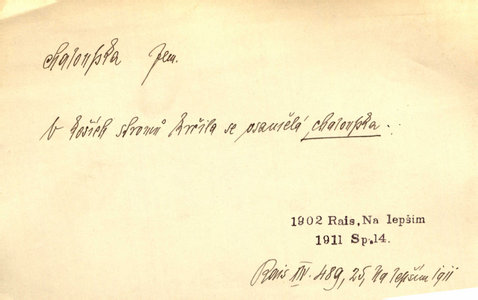 chaloupka dem.
V koších stromů krčila se osamělá chaloupka.
1902 Rais, Na lepším
1911 Sp.14.
Rais IV. 489, 25, Na lepším 1911